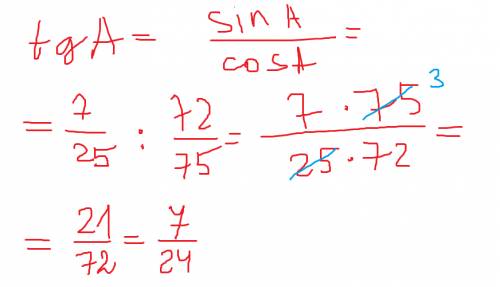 tgA = sinA/cosA =
= 7/25 : 72/75 = 7·75/25·72 = 3
= 21/72 = 7/24